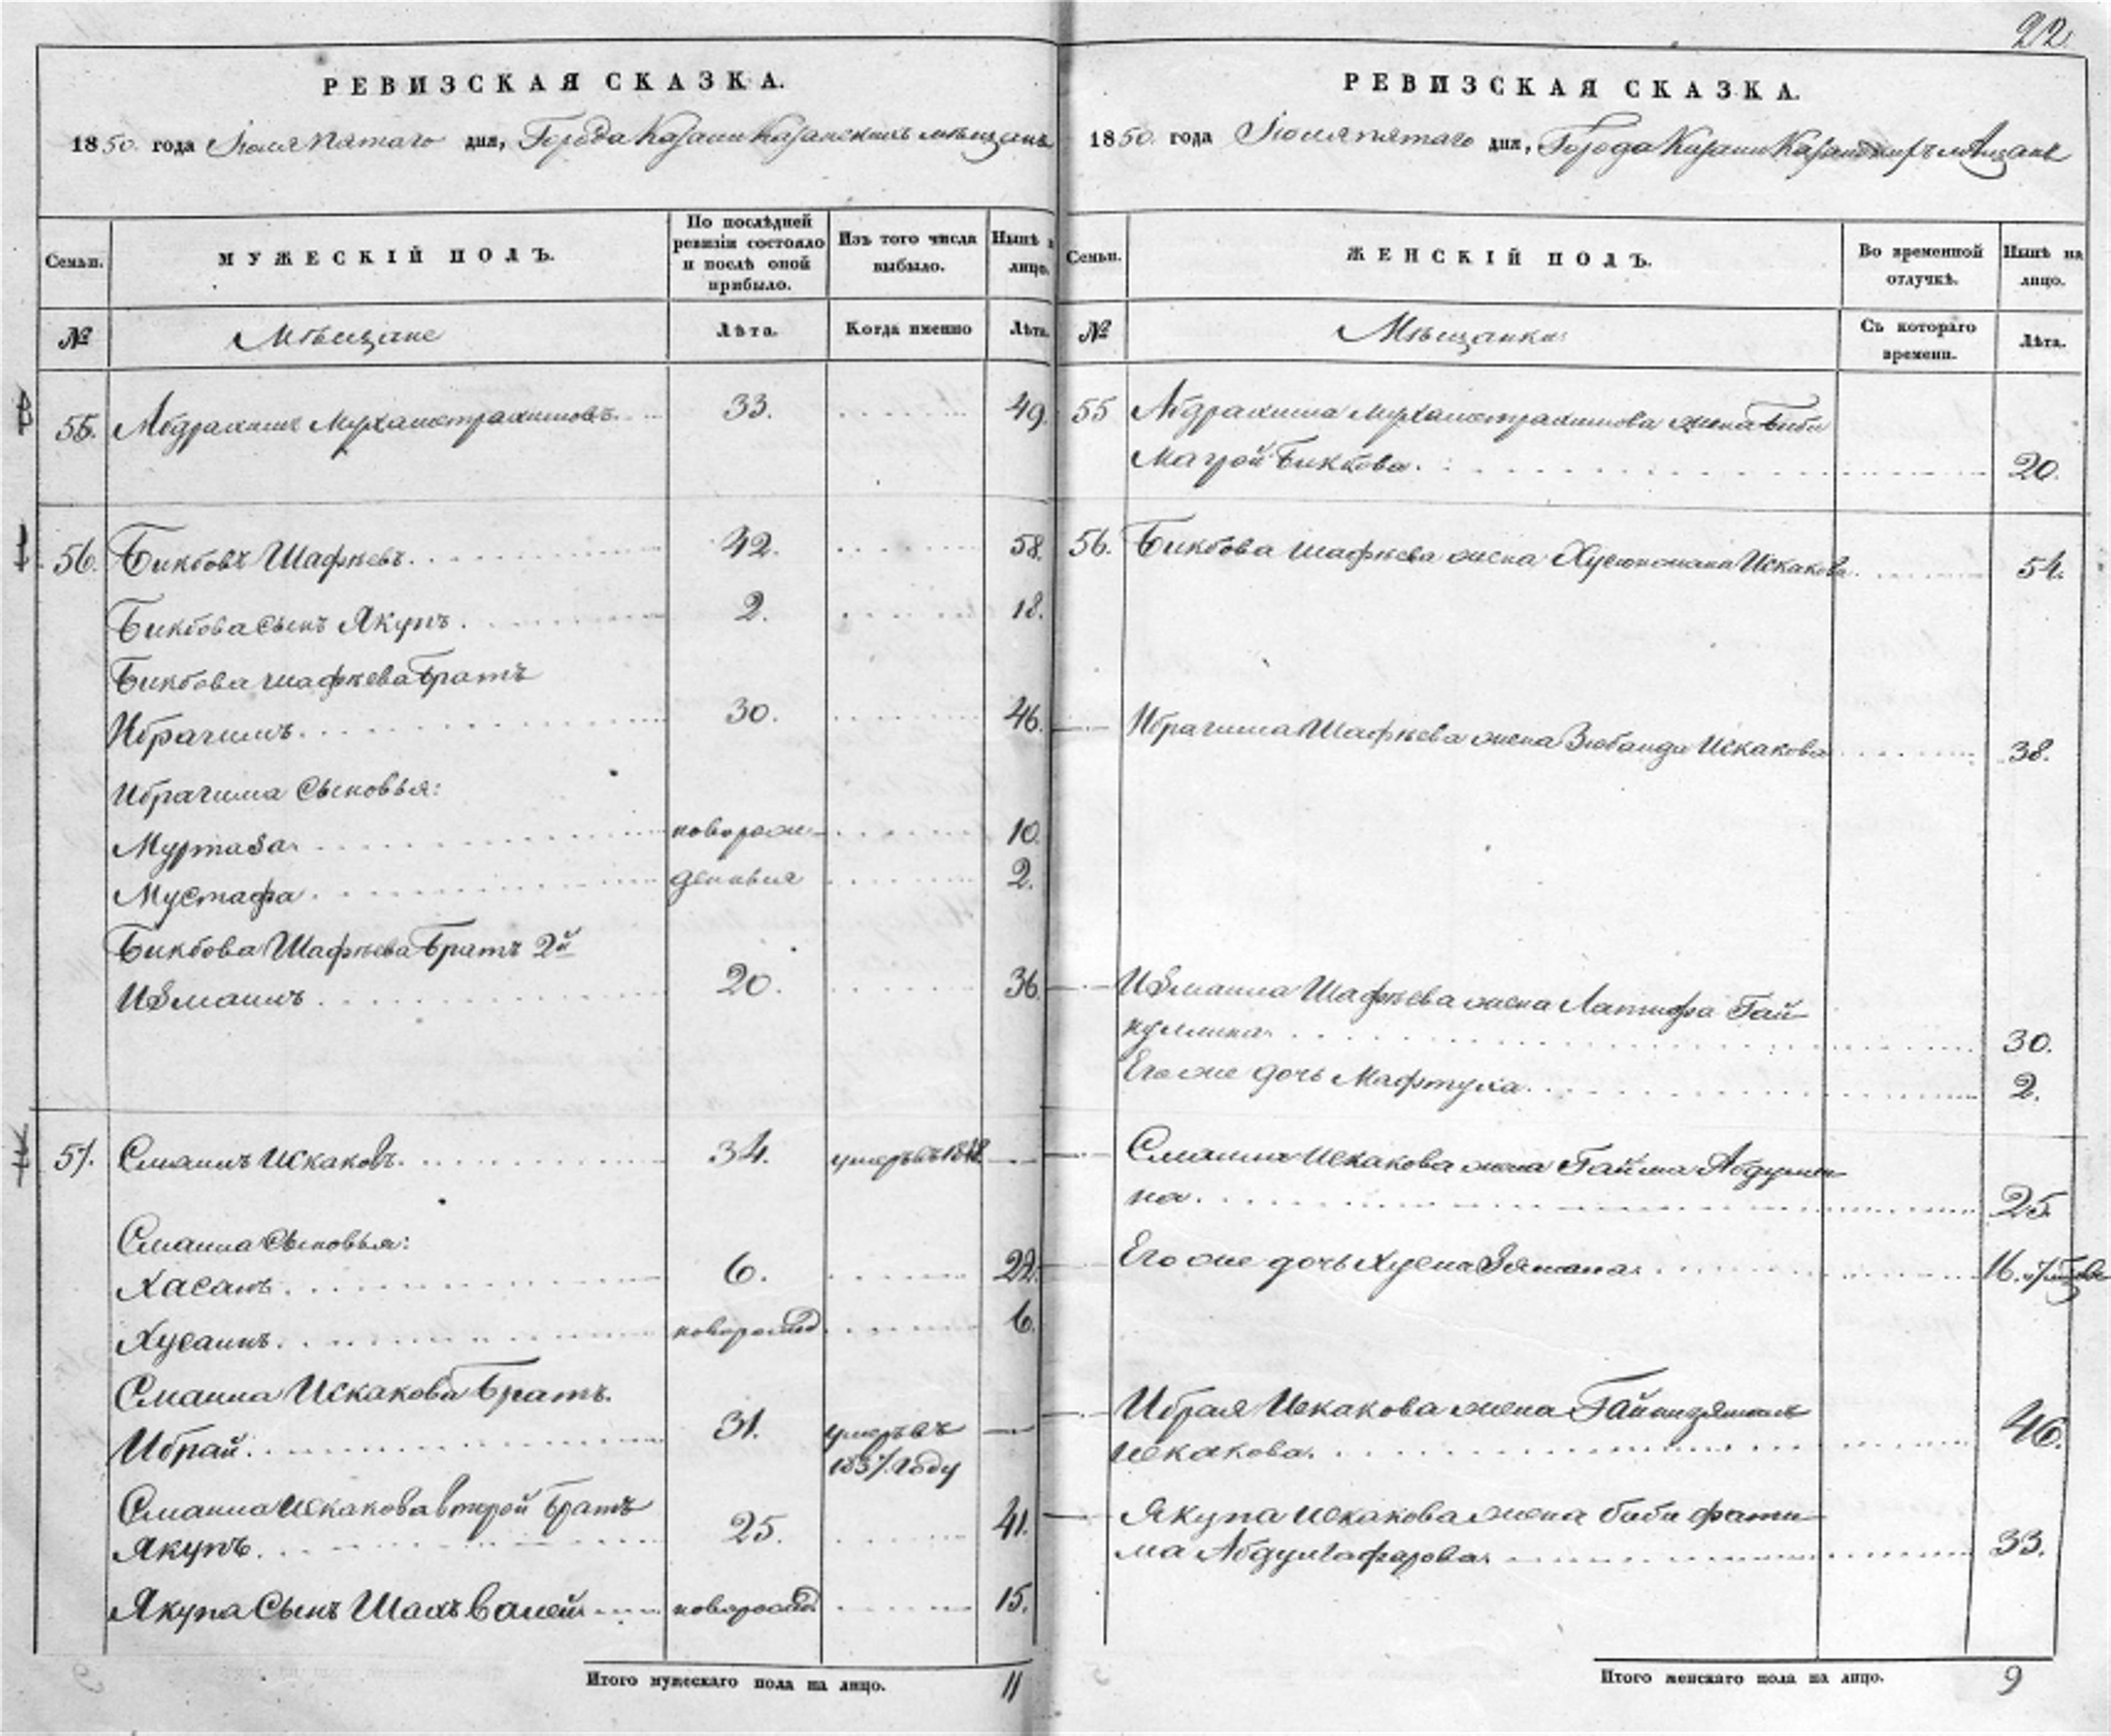 22
РЕВИЗСКАЯ СКАЗКА.
1850 года Июля пятаго дня, Города Казани Казанскихъ мѣщанъ
Семьи.
МУЖЕСКІЙ ПОЛЪ.
По послѣдней ревизіи состояло и послѣ оной прибыло.
Изъ того числа выбыло.
Нынѣ на лицо.
№
Мѣщане
Лѣта.
Когда именно
Лѣта.
55. Абдрахимъ Мухаметрахимовъ 33. 49.
56. Бикбовъ Шафѣевъ. 42. 58.
Бикбова сынъ Якупъ. 2. 18.
Бикбова Шафѣева братъ
Ибрагимъ. 30. 46.
Ибрагима сыновья:
Муртаза. новорож- 10.
Мустафа. денныя 2.
Бикбова Шафѣева братъ 2й
Измаилъ. 20. 36.
57. Смаилъ Искаковъ. 34. умеръ въ 1848 —
Смаила сыновья:
Хасанъ. 6. 22.
Хусаинъ. новорожд 6.
Смаила Искакова братъ.
Ибрай. 31. умеръ въ —
1837. году
Смаила Искакова второй братъ
Якупъ. 25. 41.
Якупа сынъ Шахъ Валей новорожд. 15.
Итого мужескаго пола на лицо. 11
РЕВИЗСКАЯ СКАЗКА.
1850 года Июля пятаго дня, Города Казани Казанскихъ мѣщане
Семьи.
ЖЕНСКІЙ ПОЛЪ.
Во временной отлучкѣ.
Нынѣ на лицо.
№
Мѣщанки
Съ котораго времени.
Лѣта.
55 Абдрахима Мухаметрахимова жена Биби
Магрой Бикбова. 20.
56. Бикбова Шафѣева жена Искакова. 54.
Ибрагима Шафѣева жена Зюбаида Искакова 38.
Измаила Шафѣева жена Латифа Гай
куллина. 30.
Его же дочь Мафтуха. 2.
Смаила Искакова жена Гайша
на. 25.
Его же дочь 16.
Ибрая Искакова жена
Искакова. 46.
Якупа Искакова жена биби фати
ма Абдулгафарова. 33.
Итого женскаго пола на лицо. 9